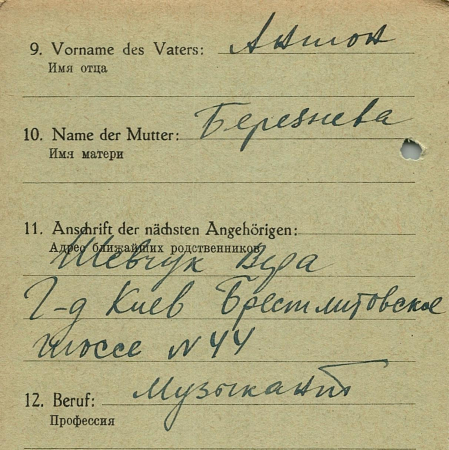 9. Vorname des Vaters: Антон
Имя отца
10. Name der Mutter: Березнева
Имя матери
11. Anschrift der nächsten Angehörigen:
Адрес ближайших родственников
Шевчук Вера
Г-д Киев Брестлитовское
шоссе N 44
12. Beruf: Музыкант
Профессия